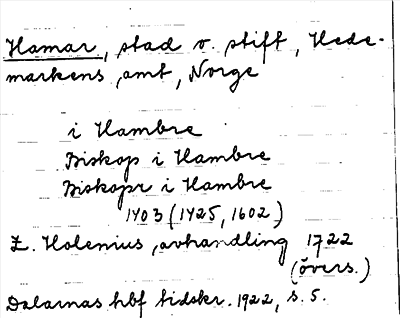 Hamar, stad o. stift, Hede-
markens amt, Norge
i Hambre
Biskop i Hambre
Biskopr i Hambre
1403 (1425, 1602)
E. Holenius, avhandling 1722
(övers.)
Dalarnas hbf tidskr. 1922, s. 5.